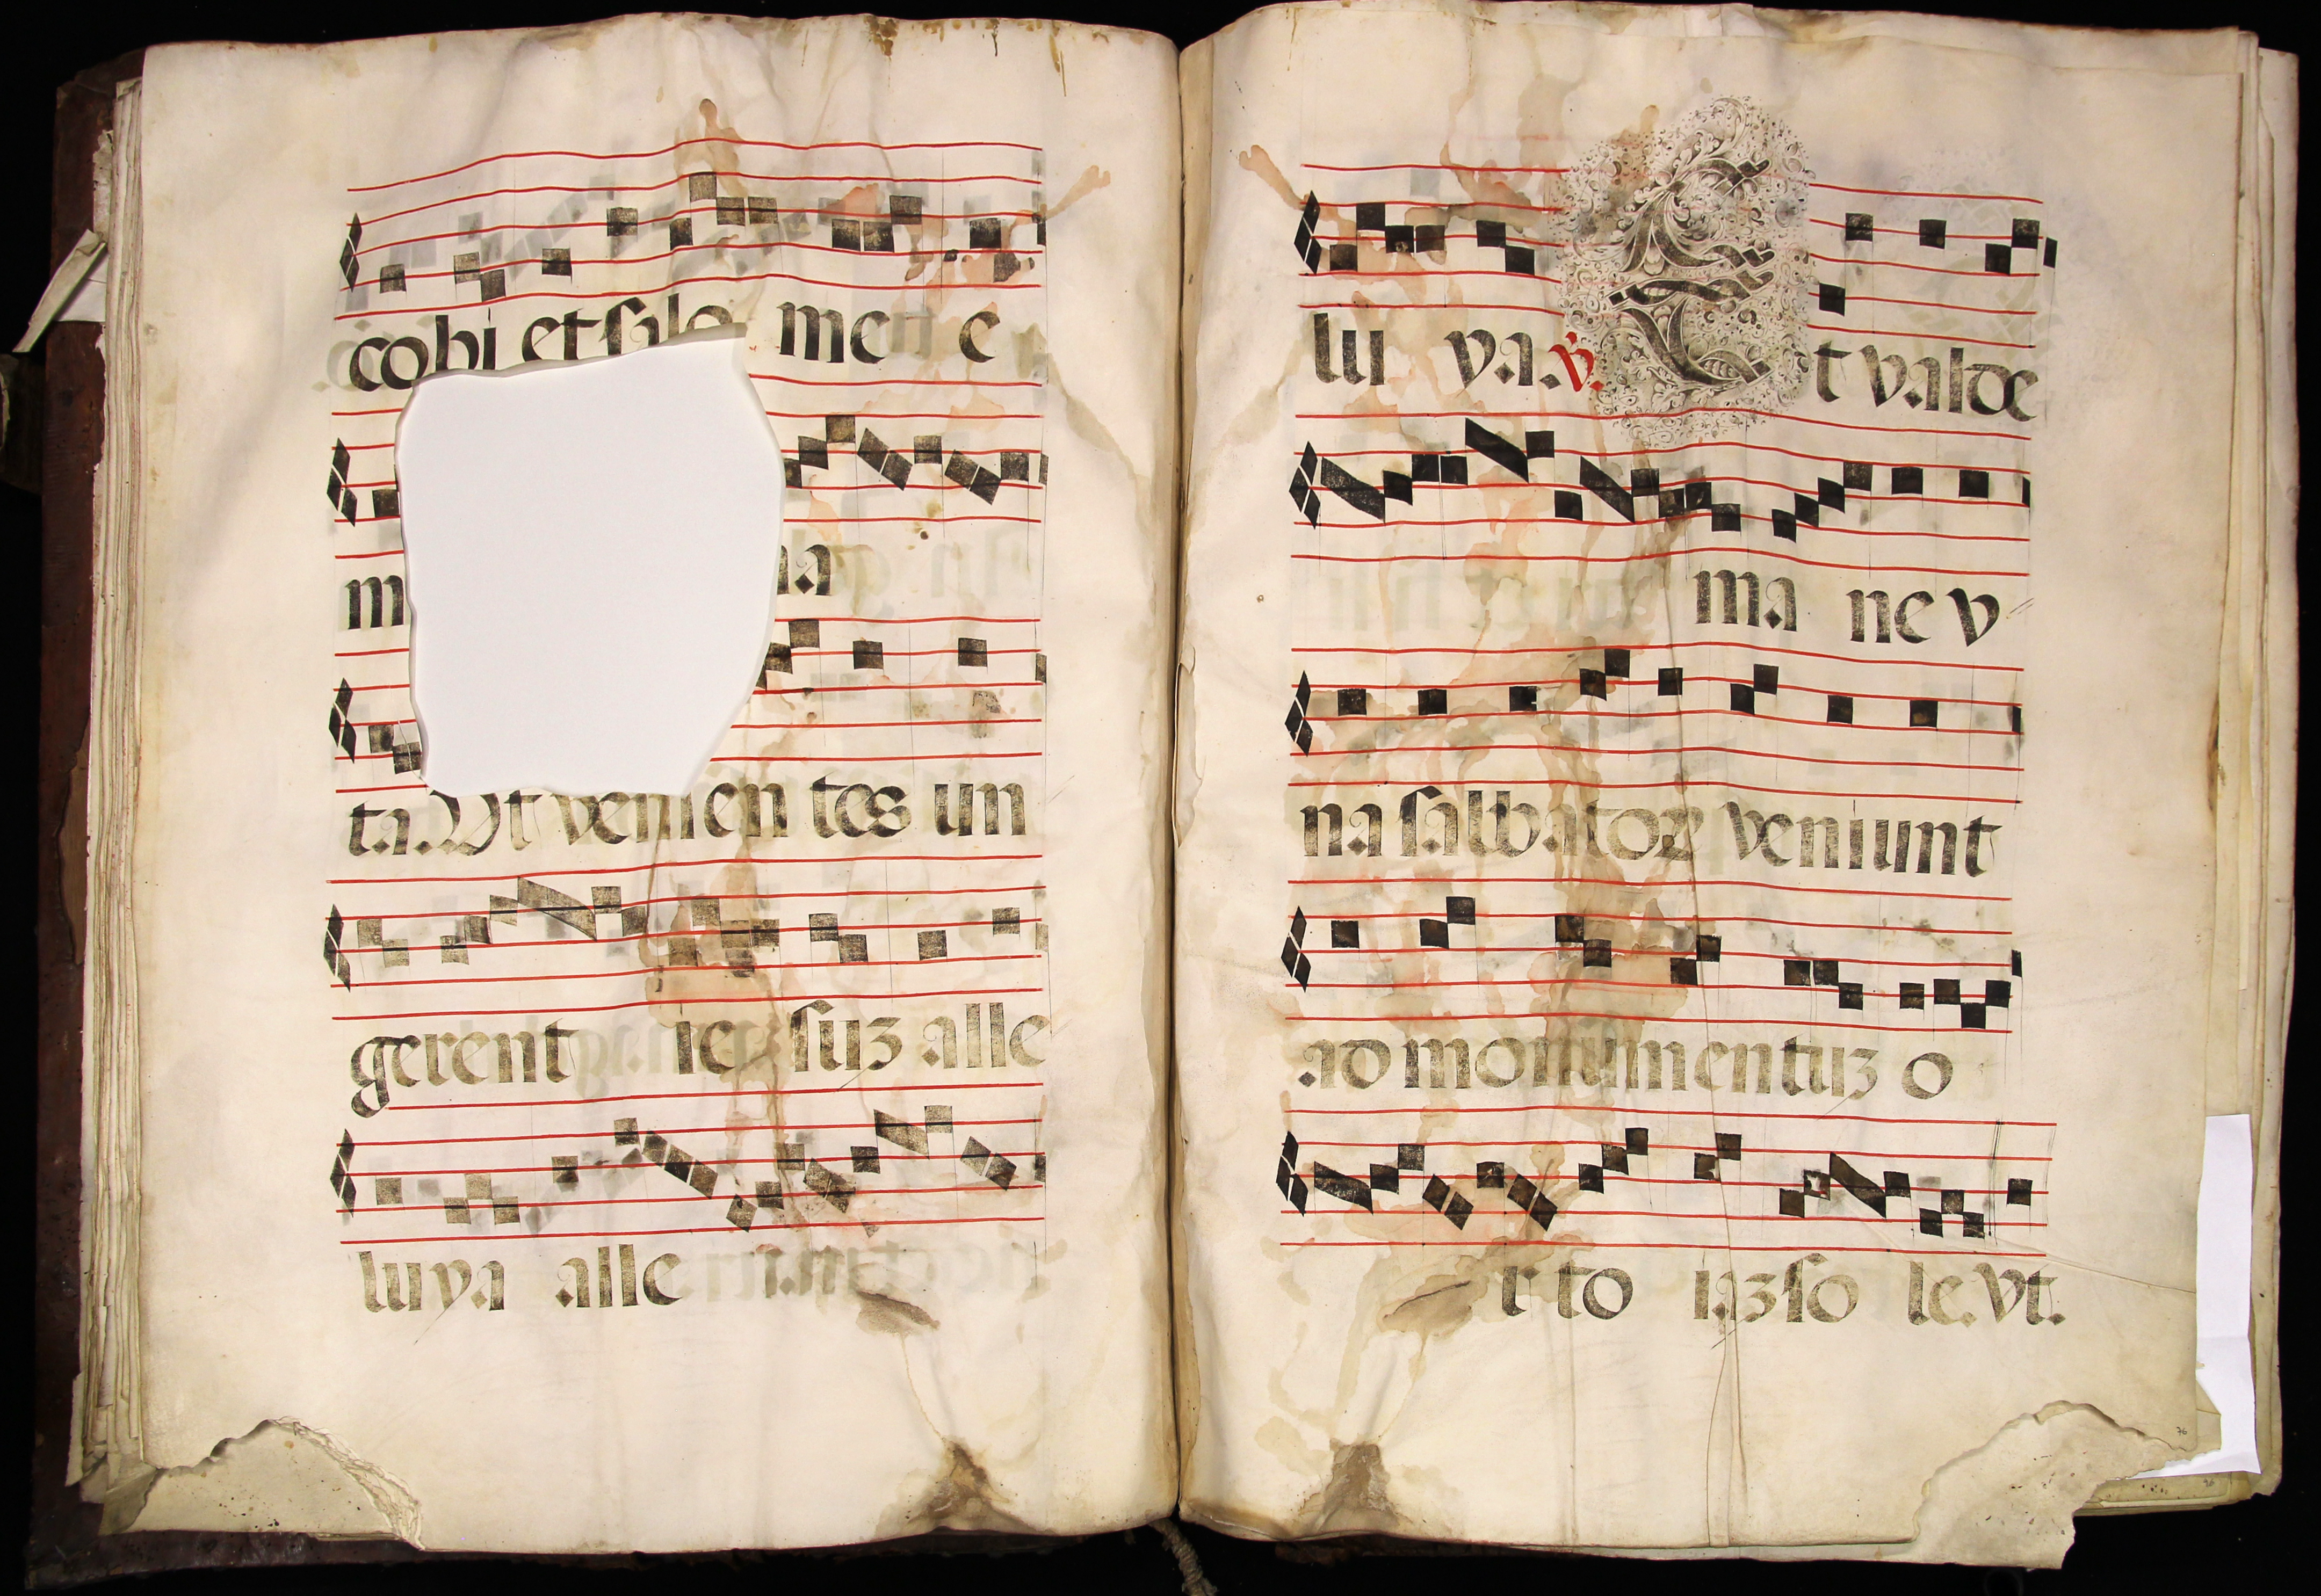 cobi et salo me e
m
ta. Ut venien tes un
gerent ie suz alle
luya alle
lu ya. V. Et valde
ma ne v
na salbator veniunt
ad monumentuz o
r to iaz so le. Vt.
76